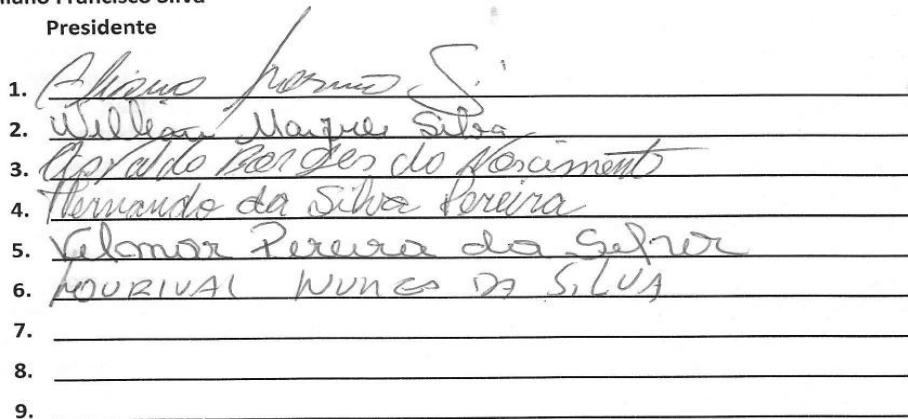 Francisco Silva
Presidente
1.
2. William Marques Silva
3. Osvaldo Borges do Nascimento
4. Hernando da Silva Pereira
5. Pereira da
6. LOURIVAL NUNES DA SILVA
7.
8.
9.